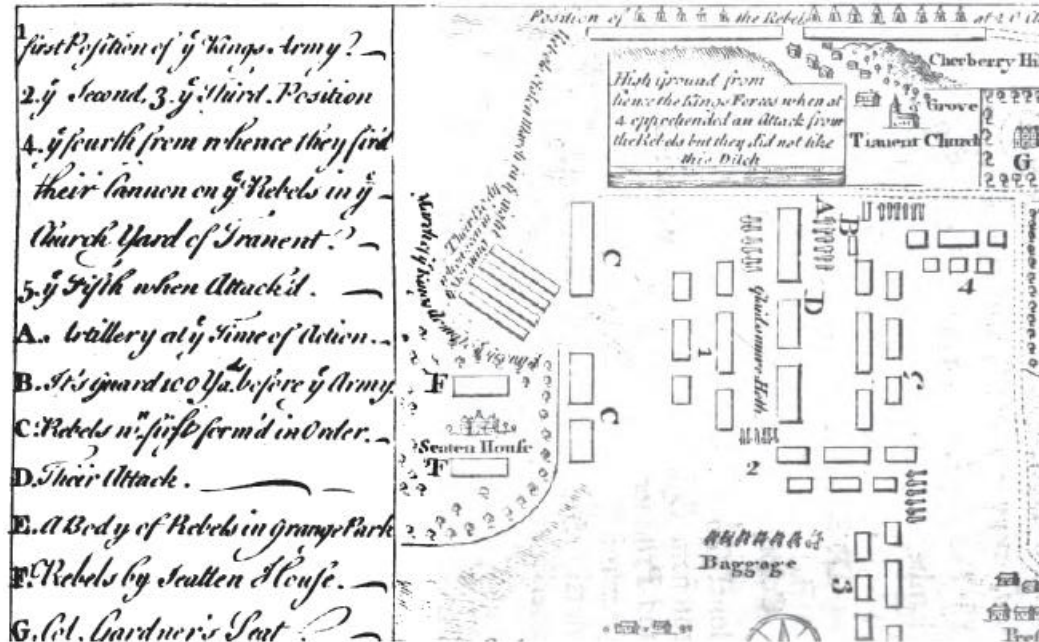 1
first Position of yᵉ Kings Army?
2. yᵉ Second, 3. yᵉ Third. Position
4. yᵉ fourth from whence they fir'd
their Cannon on yᵉ Rebels in yᵉ
Church Yard of Tranent?
5. yᵉ Fifth when Attack'd.
A. Artillery at yᵉ Time of Action.
B. It's guard 100 Yᵈˢ before yᵉ Army
C. Rebels wⁿ first form'd in Order.
D. Their Attack.
E. A Body of Rebels in Grange Park
F. Rebels by Seatten House.
G. Col. Gardner's Seat
Position of the Rebels at
High ground from
hence the Kings Forces when at
4 apprehended an Attack from
the Rebels but they did not like
this Ditch
Cheyberry Hi
Grove
Tranent Church
G
A
B
C
D
4
1
Gladsmure Heth
5
C
F
Seaten House
F
2
Baggage
3
Pres